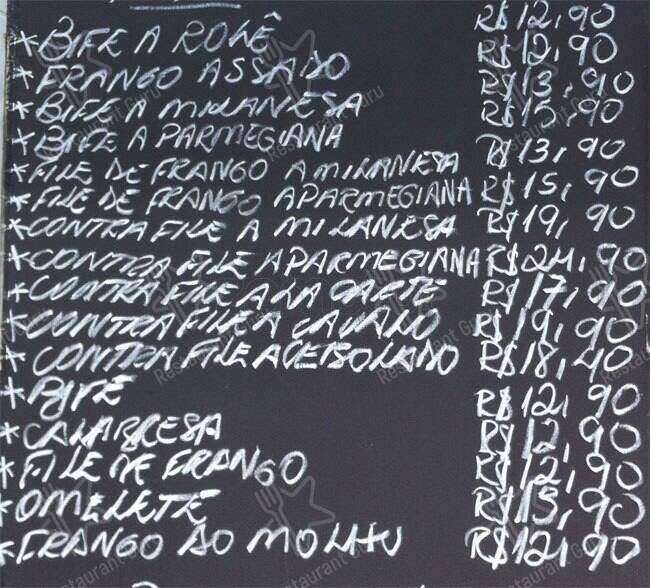 *BIFE A ROLÊ R$12,90
*FRANGO ASSADO R$12,90
*BIFE A MILANESA R$13,90
*BIFE A PARMEGIANA R$15,90
*FILE DE FRANGO A MILANESA R$13,90
*FILE DE FRANGO A PARMEGIANA R$15,90
*CONTRA FILE A MILANESA R$19,90
*CONTRA FILE A PARMEGIANA R$24,90
*CONTRA FILE A LA CARTE R$17,90
*CONTRA FILE A CAVALO R$19,90
*CONTRA FILE ACEBOLADO R$18,40
*BIFE R$12,90
*CALABRESA R$12,90
*FILE DE FRANGO R$12,90
*OMELETE R$13,90
*FRANGO AO MOLHO R$12,90
Restaurant Guru